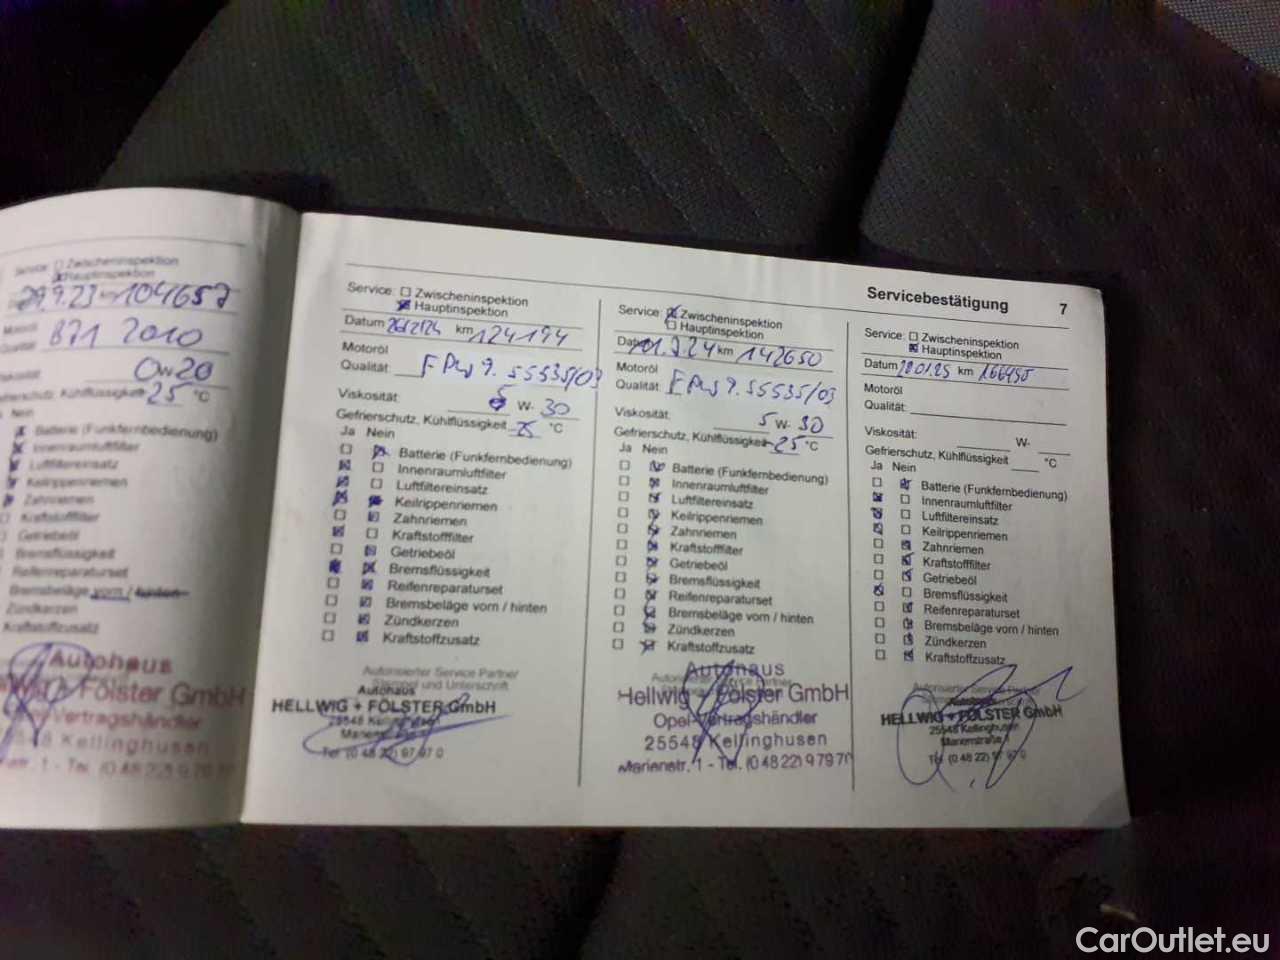 Service: Zwischeninspektion
Hauptinspektion
29.9.23 km 104657
Motoröl
Qualität 871 2010
Viskosität 0 W 20
Gefrierschutz, Kühlflüssigkeit 25 °C
Nein
Batterie (Funkfernbedienung)
Innenraumluftfilter
Luftfiltereinsatz
Keilrippenriemen
Zahnriemen
Kraftstofffilter
Getriebeöl
Bremsflüssigkeit
Reifenreparaturset
Bremsbeläge vorn / hinten
Zündkerzen
Kraftstoffzusatz
Autohaus
Fölster GmbH
Vertragshändler
Kellinghusen
Servicebestätigung 7
Service: Zwischeninspektion
Hauptinspektion
Datum km 124194
Motoröl
Qualität: 9.55535/03
Viskosität: 5 W- 30
Gefrierschutz, Kühlflüssigkeit 25 °C
Ja Nein
Batterie (Funkfernbedienung)
Innenraumluftfilter
Luftfiltereinsatz
Keilrippenriemen
Zahnriemen
Kraftstofffilter
Getriebeöl
Bremsflüssigkeit
Reifenreparaturset
Bremsbeläge vorn / hinten
Zündkerzen
Kraftstoffzusatz
Autorisierter Service Partner
Stempel und Unterschrift
Autohaus
HELLWIG + FÖLSTER GmbH
25548 Kellinghusen
Tel (0 48 22) 97 97 0
Service: Zwischeninspektion
Hauptinspektion
Datum km 142650
Motoröl
Qualität: 9.55535/03
Viskosität: 5 W- 30
Gefrierschutz, Kühlflüssigkeit -25 °C
Ja Nein
Batterie (Funkfernbedienung)
Innenraumluftfilter
Luftfiltereinsatz
Keilrippenriemen
Zahnriemen
Kraftstofffilter
Getriebeöl
Bremsflüssigkeit
Reifenreparaturset
Bremsbeläge vorn / hinten
Zündkerzen
Kraftstoffzusatz
Autohaus
Hellwig + Fölster GmbH
Opel-Vertragshändler
25548 Kellinghusen
Marienstr. 1 - Tel. (04822) 97970
Service: Zwischeninspektion
Hauptinspektion
Datum km 166495
Motoröl
Qualität:
Viskosität: W-
Gefrierschutz, Kühlflüssigkeit °C
Ja Nein
Batterie (Funkfernbedienung)
Innenraumluftfilter
Luftfiltereinsatz
Keilrippenriemen
Zahnriemen
Kraftstofffilter
Getriebeöl
Bremsflüssigkeit
Reifenreparaturset
Bremsbeläge vorn / hinten
Zündkerzen
Kraftstoffzusatz
Autorisierter Service Partner
HELLWIG + FÖLSTER GmbH
25548 Kellinghusen
Marienstraße 1
Tel. (0 48 22) 97 97 0
CarOutlet.eu